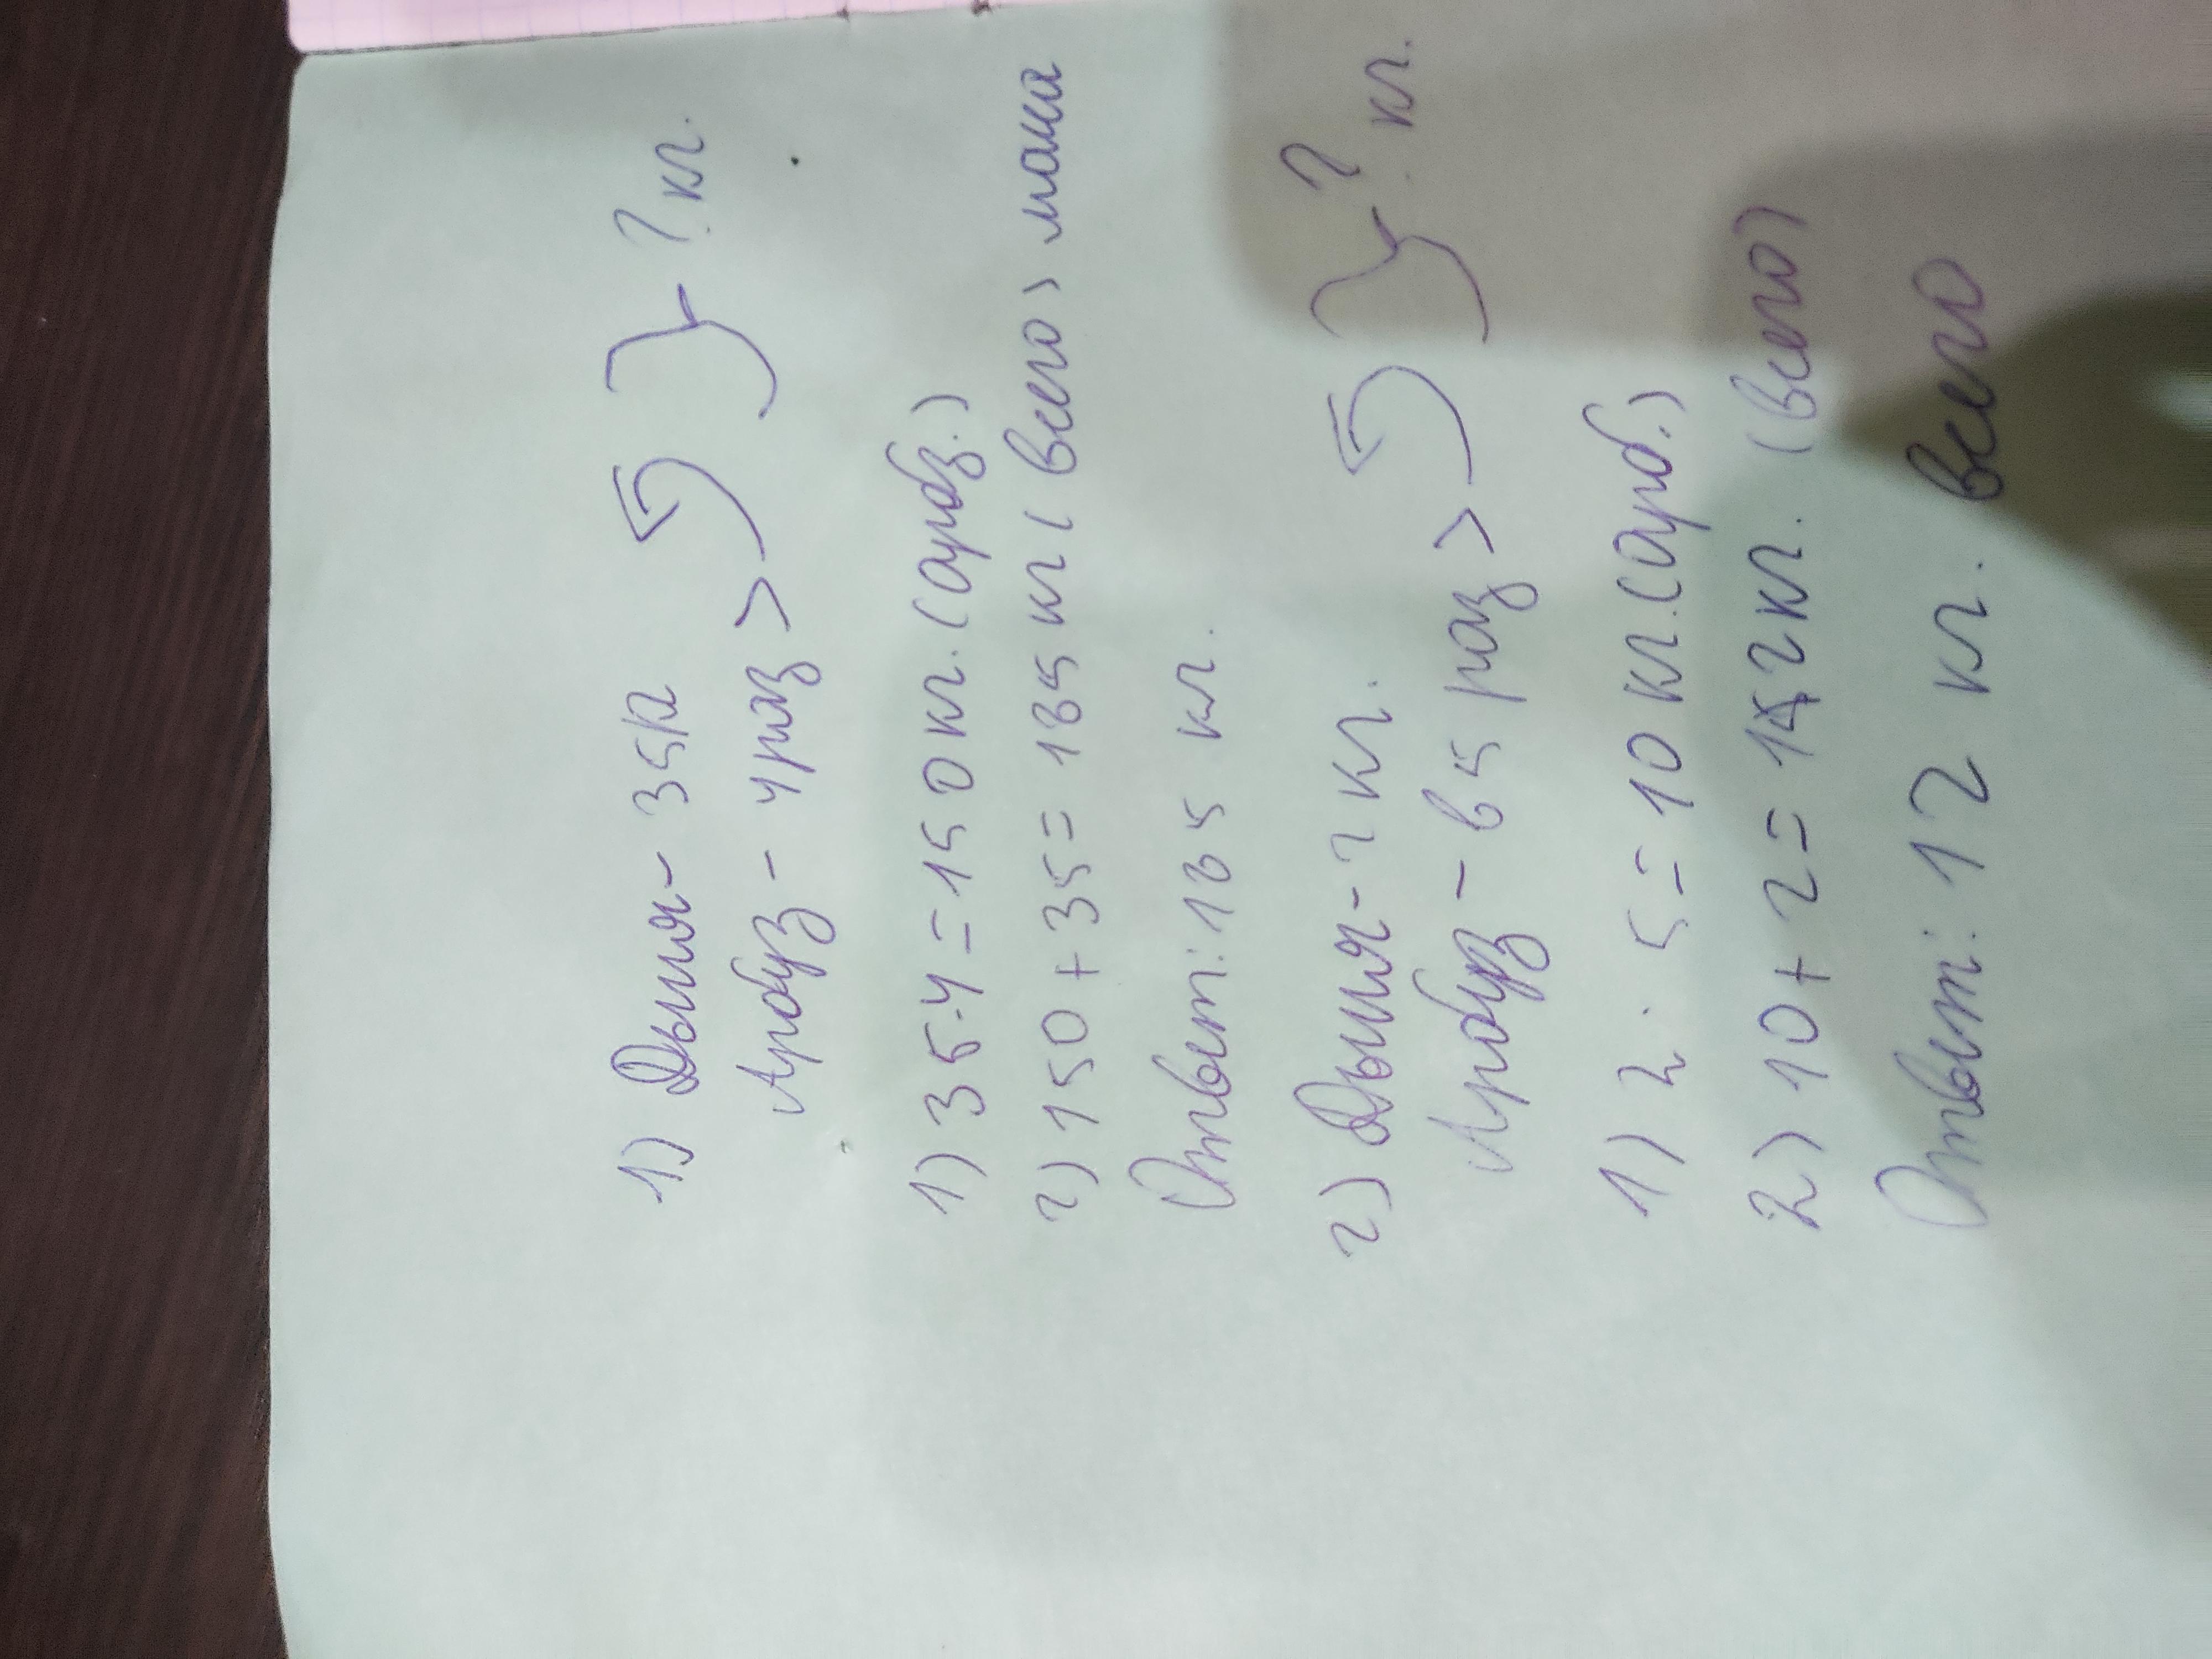 1) Дыня - 35кг
Арбуз - 4 раз > } ? кг.
1) 35·4 = 150 кг. (арбз.)
2) 150 + 35 = 185 кг (всего)
Ответ: 185 кг.
2) Дыня - 2 кг.
Арбуз - в 5 раз > } ? кг.
1) 2 · 5 = 10 кг. (арб.)
2) 10 + 2 = 12 кг. (всего)
Ответ: 12 кг. всего